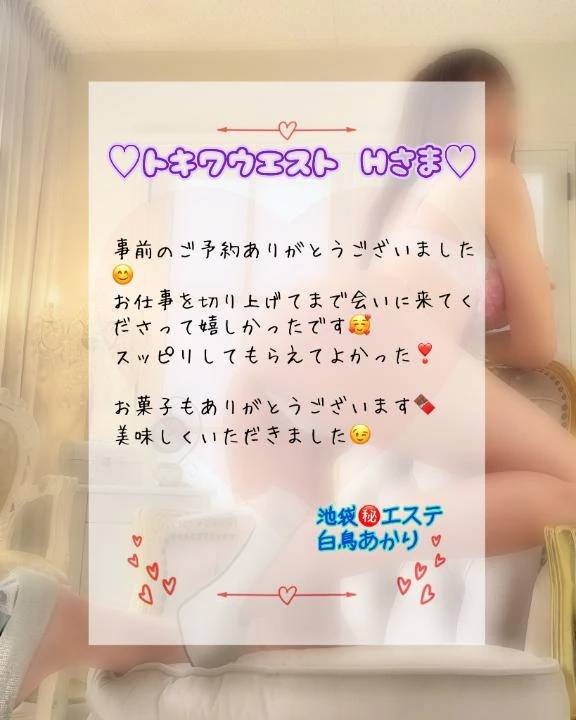 ♡トキワウエスト Hさま♡
事前のご予約ありがとうございました
😊
お仕事を切り上げてまで会いに来てく
ださって嬉しかったです🥰
スッピリしてもらえてよかった❣️
お菓子もありがとうございます🍫
美味しくいただきました😉
池袋㊙️エステ
白鳥あかり